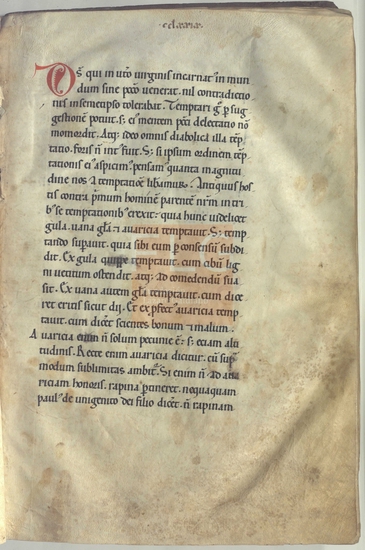 Ds̄ qui in utō uirginis incarnat᷒ in mun
dum sine pecō uenerat. nil contradictio
nis in semetipso tolerabat. Temptari g̊ p sug
gestionē potuit. s; ei᷒ mentem peci delectatio nō
momordit. Atq; ideo omnis diabolica illa tēp
tatio. foris n̄ int᷒ fuit. S; si ipsum ordinem tēp
tationis ei᷒ aspicim᷒. pensam᷒ quanta magnitu
dine nos a temptatiōe liberamur. Antiquus hos
tis contra pmum hominē parentē nr̄m in tri
b᷒ se temptationib᷒ erexit. quia hunc uidelicet
gula. uana gl̄a. & auaricia temptauit. S; temp
tando supauit. quia sibi eum p consensū subdi
dit. Ex gula quippe temptauit. cum cibū lig
ni uetitum ostendit. atq; ad comedendū sua
sit. Ex uana autem gl̄a temptauit. cum dice
ret eritis sicut dij. Et ex pfectu auaricia temp
tauit. cum dicēt scientes bonum & malum.
Auaricia enim n̄ solum pecunie ē: s; etiam alti
tudinis. Recte enim auaricia dicitur. cū sup̄
modum sublimitas ambit᷒. Si enim n̄ ad aua
riciam honoris. rapina ptineret. nequaquam
paul᷒ de unigenito dei filio dicēt. n̄ rapinam